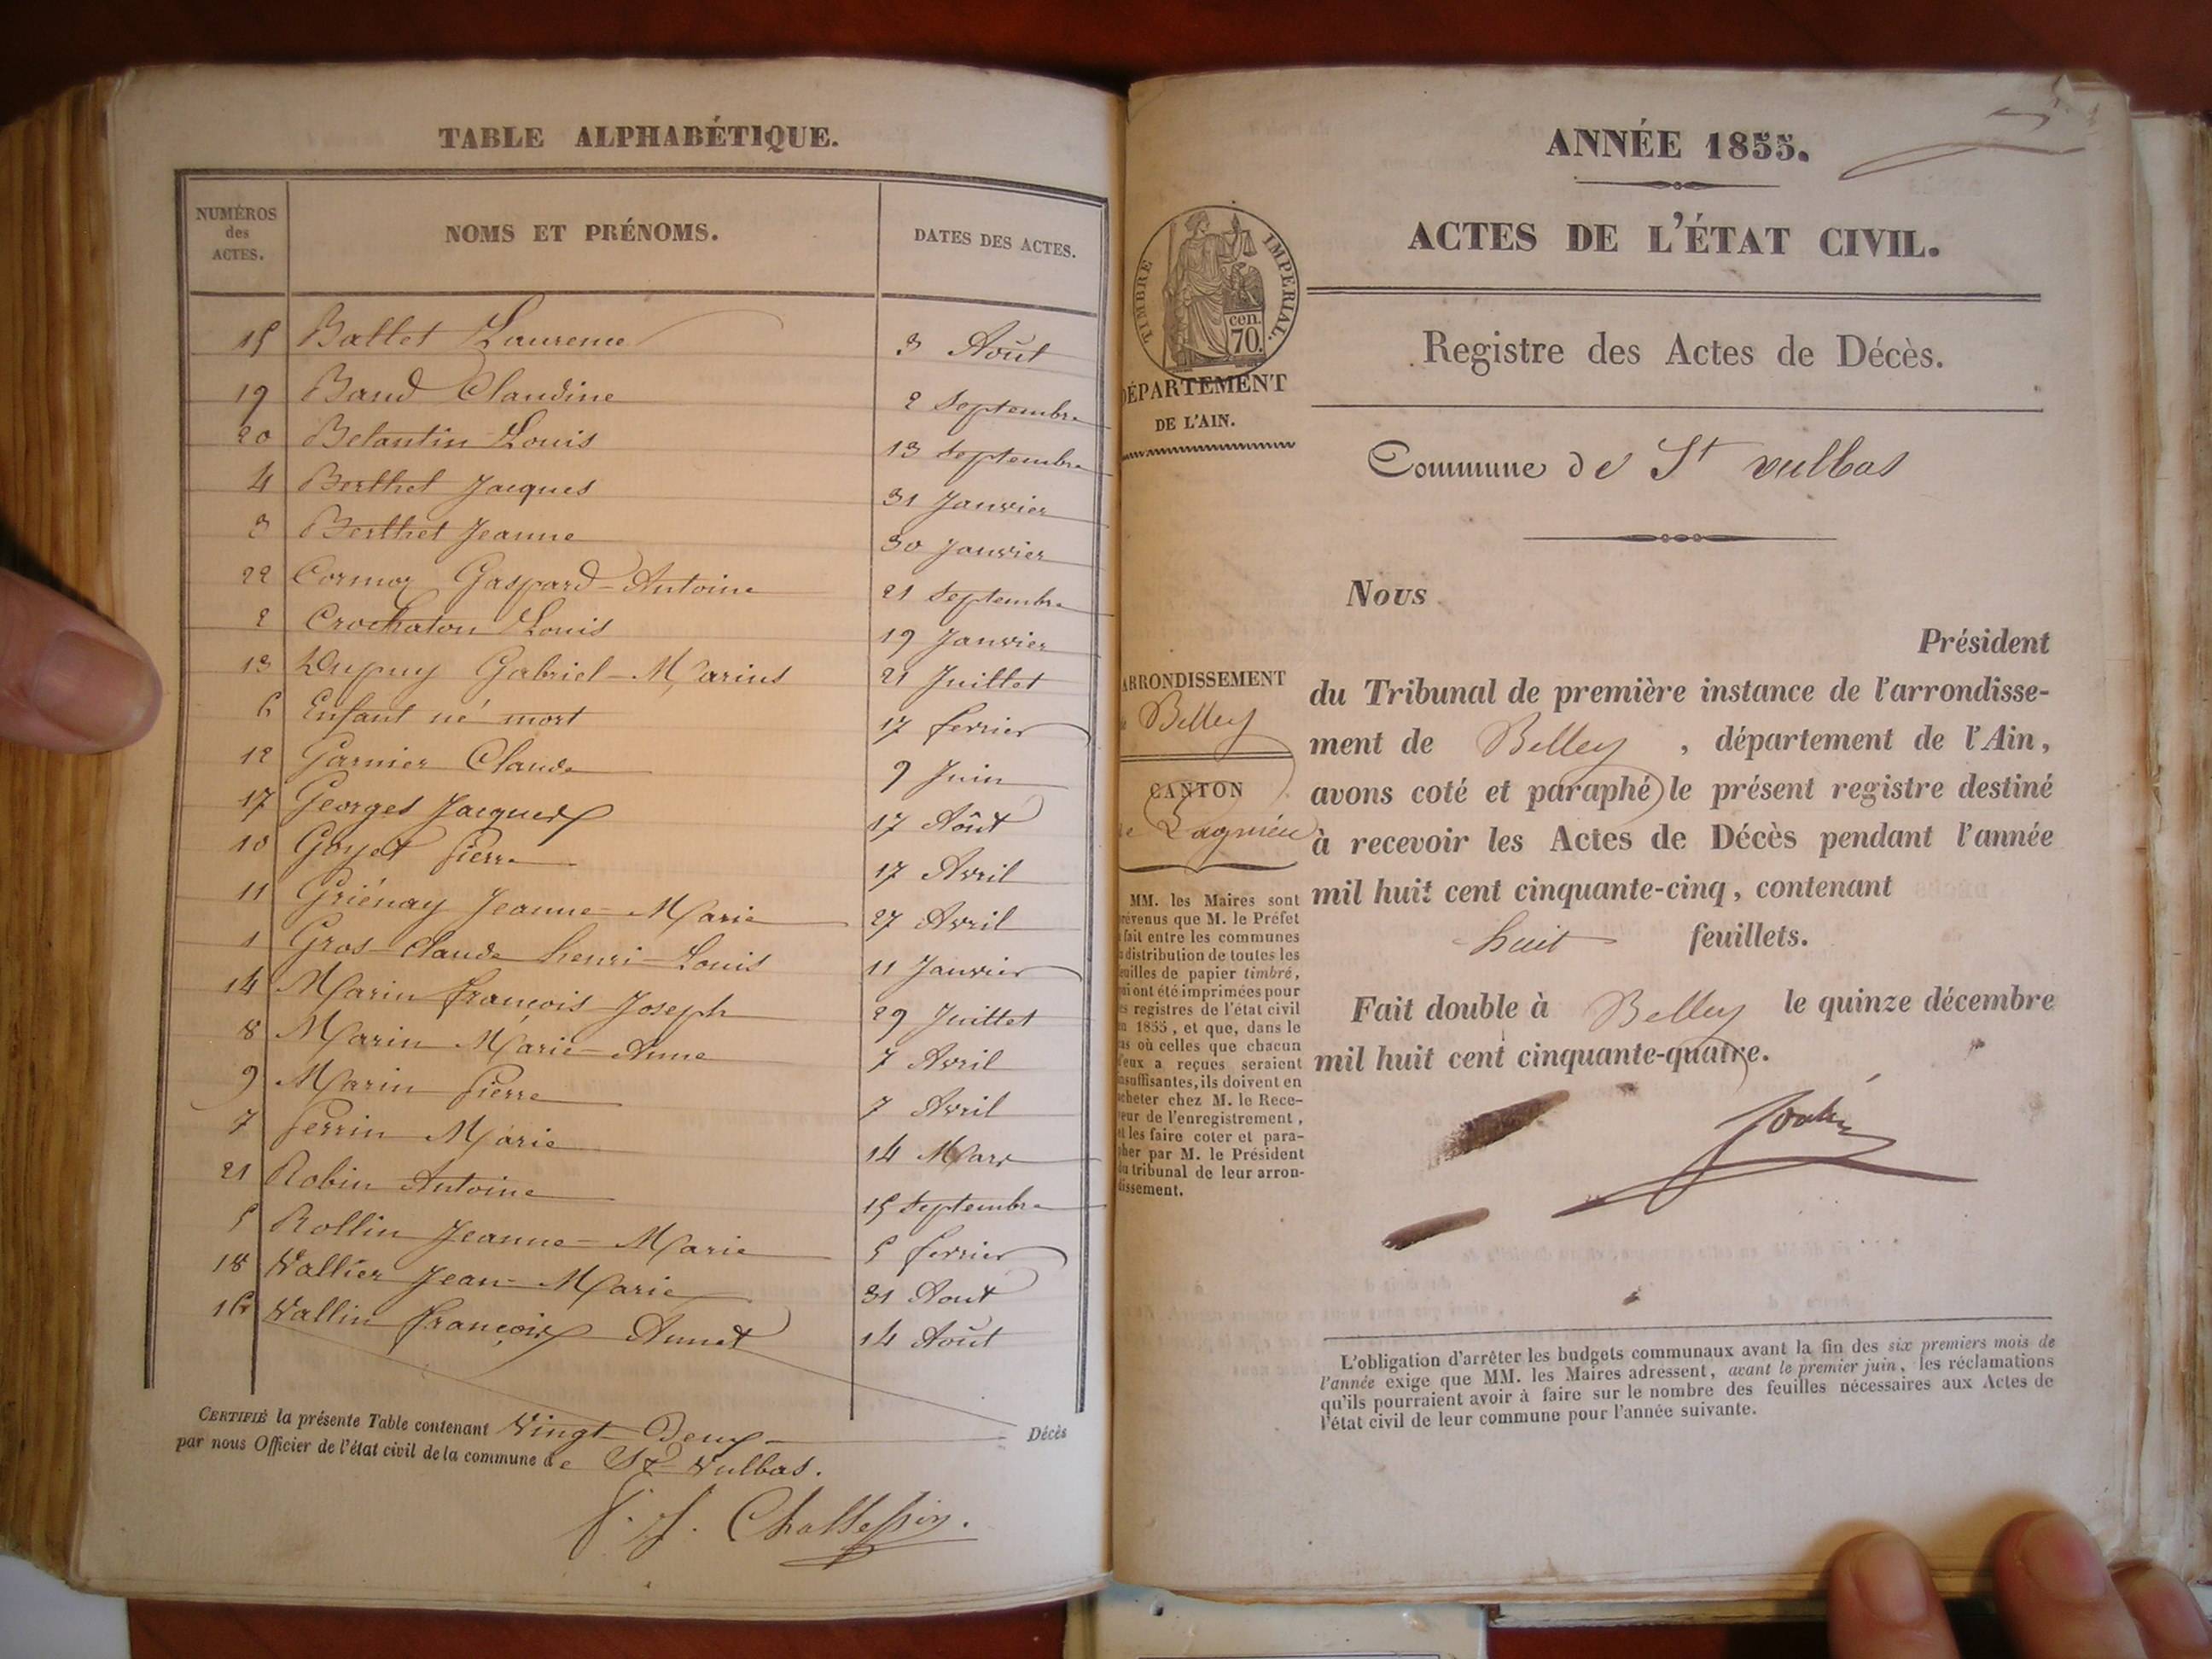 TABLE ALPHABÉTIQUE.
NUMÉROS des ACTES.
NOMS ET PRÉNOMS.
DATES DES ACTES.
15 Ballet Laurence 3 Août
19 Baud Claudine 2 Septembre
20 Belantin Louis 13 Septembre
4 Berthet Jacques 31 Janvier
3 Berthet Jeanne 30 Janvier
22 Cormoz Gaspard-Antoine 21 Septembre
2 Crochaton Louis 19 Janvier
13 Dupuy Gabriel-Marius 21 Juillet
6 Enfant né mort 17 fevrier
12 Garnier Claude 9 Juin
17 Georges Jacques 17 Août
10 Goyet Pierre 17 Avril
11 Griénay Jeanne-Marie 27 Avril
1 Gros-Claude henri-Louis 11 Janvier
14 Marin François-Joseph 29 Juillet
8 Marin Marie-Anne 7 Avril
9 Marin Pierre 7 Avril
7 Perrin Marie 14 Mars
21 Robin Antoine 15 Septembre
5 Rollin Jeanne-Marie 5 fevrier
18 Vallier Jean-Marie 31 Aout
16 Vallin François Annet 14 Août
CERTIFIÉ la présente Table contenant Vingt-Deux Décès
par nous Officier de l'état civil de la commune de St Vulbas.
ANNÉE 1855.
ACTES DE L'ÉTAT CIVIL.
TIMBRE IMPERIAL.
cen.
70.
DÉPARTEMENT
DE L'AIN.
Registre des Actes de Décès.
Commune de St vulbas
ARRONDISSEMENT
de Belley
CANTON
de Lagnieu
MM. les Maires sont
prévenus que M. le Préfet
a fait entre les communes
la distribution de toutes les
feuilles de papier timbré,
qui ont été imprimées pour
les registres de l'état civil
en 1855, et que, dans le
cas où celles que chacun
d'eux a reçues seraient
insuffisantes, ils doivent en
acheter chez M. le Rece-
veur de l'enregistrement,
et les faire coter et para-
pher par M. le Président
du tribunal de leur arron-
dissement.
Nous
Président
du Tribunal de première instance de l'arrondisse-
ment de Belley, département de l'Ain,
avons coté et paraphé le présent registre destiné
à recevoir les Actes de Décès pendant l'année
mil huit cent cinquante-cinq, contenant
huit feuillets.
Fait double à Belley le quinze décembre
mil huit cent cinquante-quatre.
L'obligation d'arrêter les budgets communaux avant la fin des six premiers mois de
l'année exige que MM. les Maires adressent, avant le premier juin, les réclamations
qu'ils pourraient avoir à faire sur le nombre des feuilles nécessaires aux Actes de
l'état civil de leur commune pour l'année suivante.